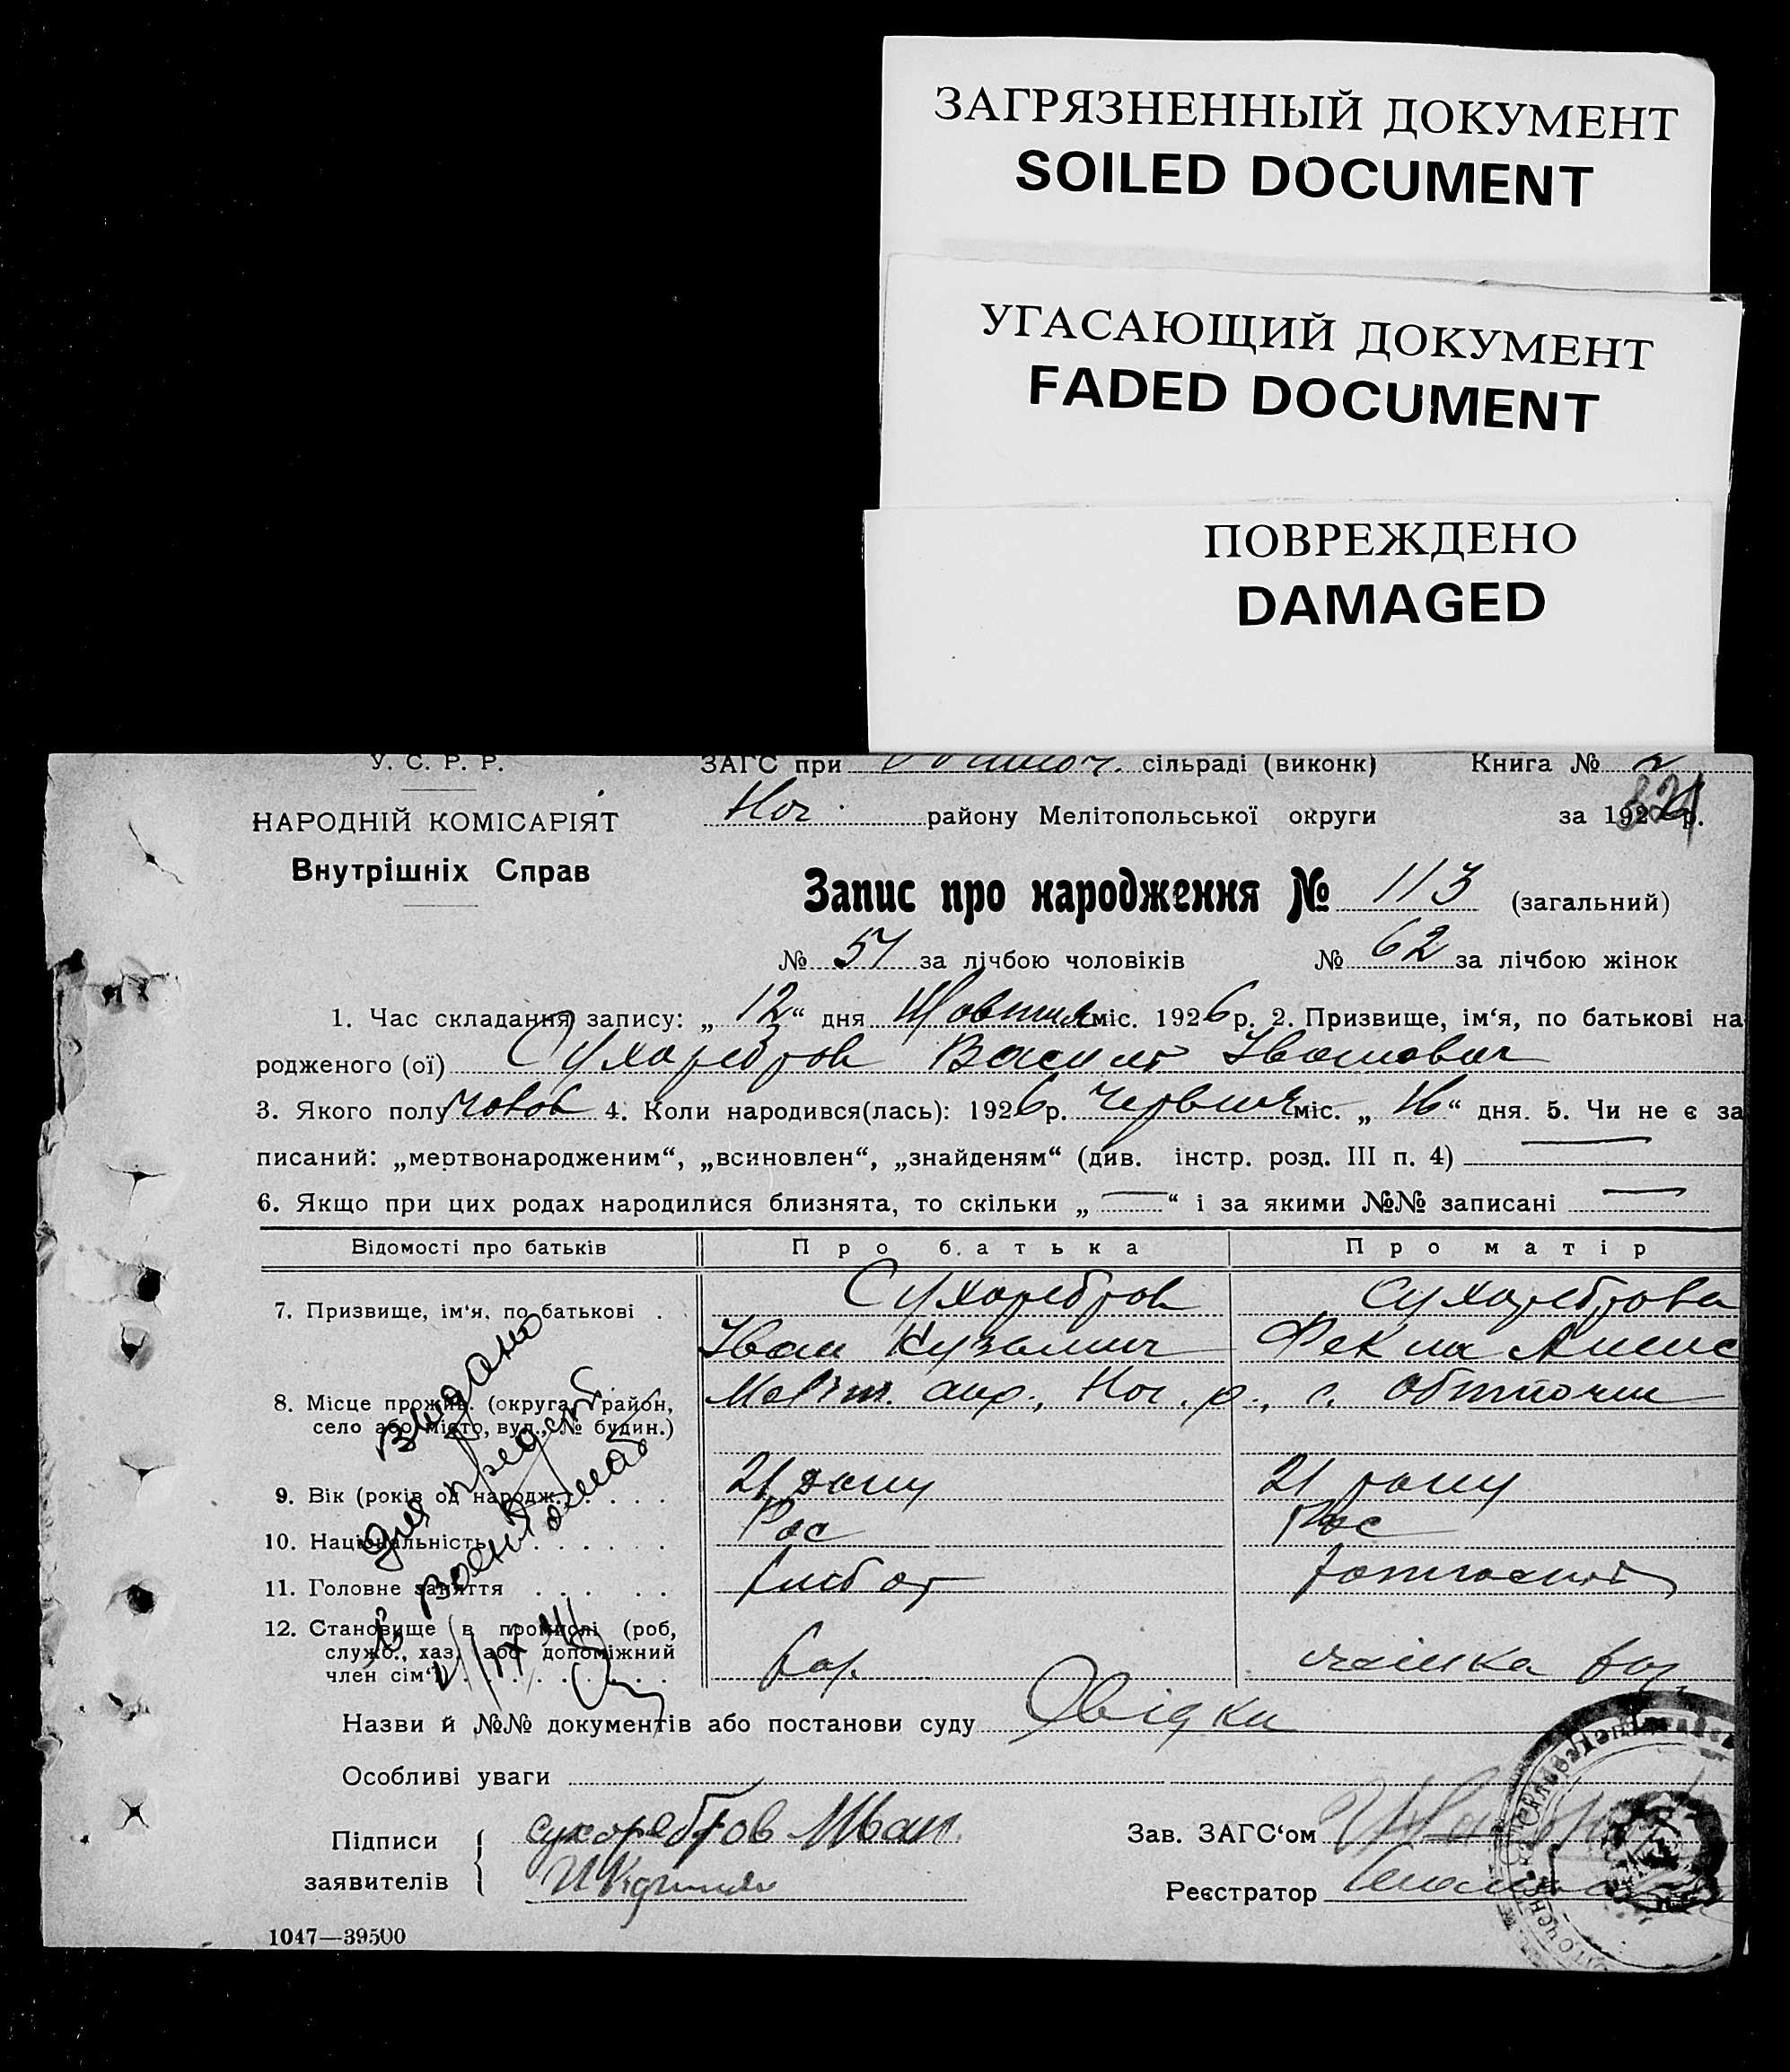 ЗАГРЯЗНЕННЫЙ ДОКУМЕНТ
SOILED DOCUMENT
УГАСАЮЩИЙ ДОКУМЕНТ
FADED DOCUMENT
ПОВРЕЖДЕНО
DAMAGED
У. С. Р. Р. ЗАГС при сільраді (виконк) Книга № 2
Ног. району Мелітопольської округи за 1926 р.
НАРОДНІЙ КОМІСАРІЯТ
Внутрішніх Справ
Запис про народження № 113 (загальний)
№ 51 за лічбою чоловіків № 62 за лічбою жінок
1. Час складання запису: „12“ дня Жовтня міс. 1926 р. 2. Призвище, ім‘я, по батькові на
родженого (ої) Сухоребров Василь Іванович
3. Якого полу чолов 4. Коли народився(лась): 1926 р. червня міс. „16“ дня. 5. Чи не є за
писаний: „мертвонародженим“, „всиновлен“, „знайденям“ (див. інстр. розд. III п. 4) —
6. Якщо при цих родах народилися близнята, то скільки „—“ і за якими №№ записані —
Відомості про батьків Про батька Про матір
7. Призвище, ім‘я, по батькові . Сухоребров Сухореброва
Іван Кузьмич Фекла
8. Місце прожив. (округа, район, Меліт. окр., Ног. р., с. Обиточна
село або місто, вул., № будин.)
9. Вік (років од народж.) . . . . 21 року 21 року
10. Національність . . . . . . Рос Рос
11. Головне заняття . . . . . хлібор
12. Становище в промислі (роб,
служб., хаз. або допоміжний
член сім‘ї) . . . . . . . . хаз.
видано
для
Назви й №№ документів або постанови суду Свідки
Особливі уваги
Підписи сухоребров Иван
заявителів
Зав. ЗАГС‘ом
Реєстратор
1047—39500